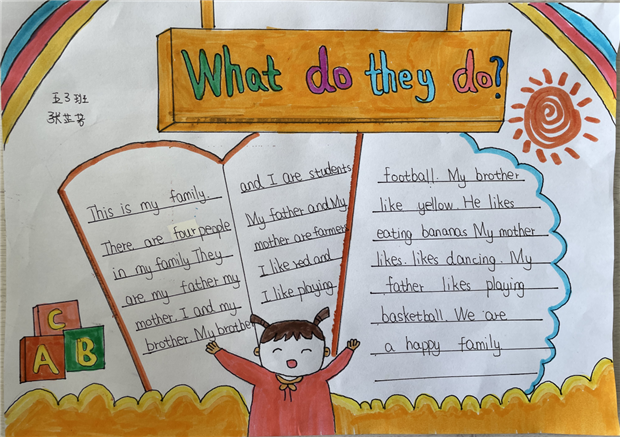 What do they do?
五3班
This is my family.
There are four people
in my family They
are my father my
mother I and my
brother. My brother
and I are students
My father and My
mother are farmers
I like red and
I like playing
football. My brother
like yellow. He likes
eating bananas My mother
likes. likes dancing. My
father likes playing
basketball. We are
a happy family
C
A B